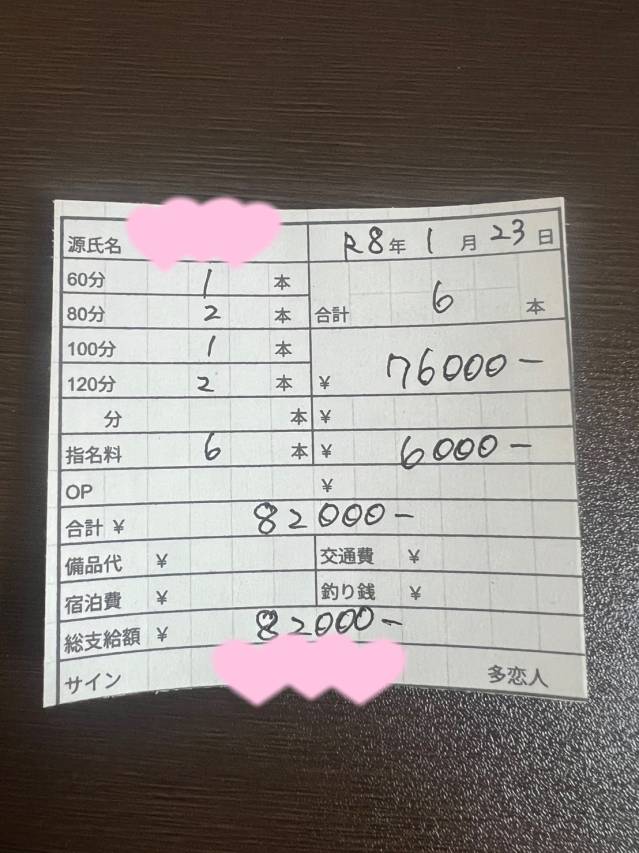 源氏名 R8年 1月 23日
60分 1 本
80分 2 本 合計 6 本
100分 1 本
120分 2 本 ¥ 76000-
分 本 ¥
指名料 6 本 ¥ 6000-
OP ¥
合計 ¥ 82000-
備品代 ¥ 交通費 ¥
宿泊費 ¥ 釣り銭 ¥
総支給額 ¥ 82000-
サイン 多恋人